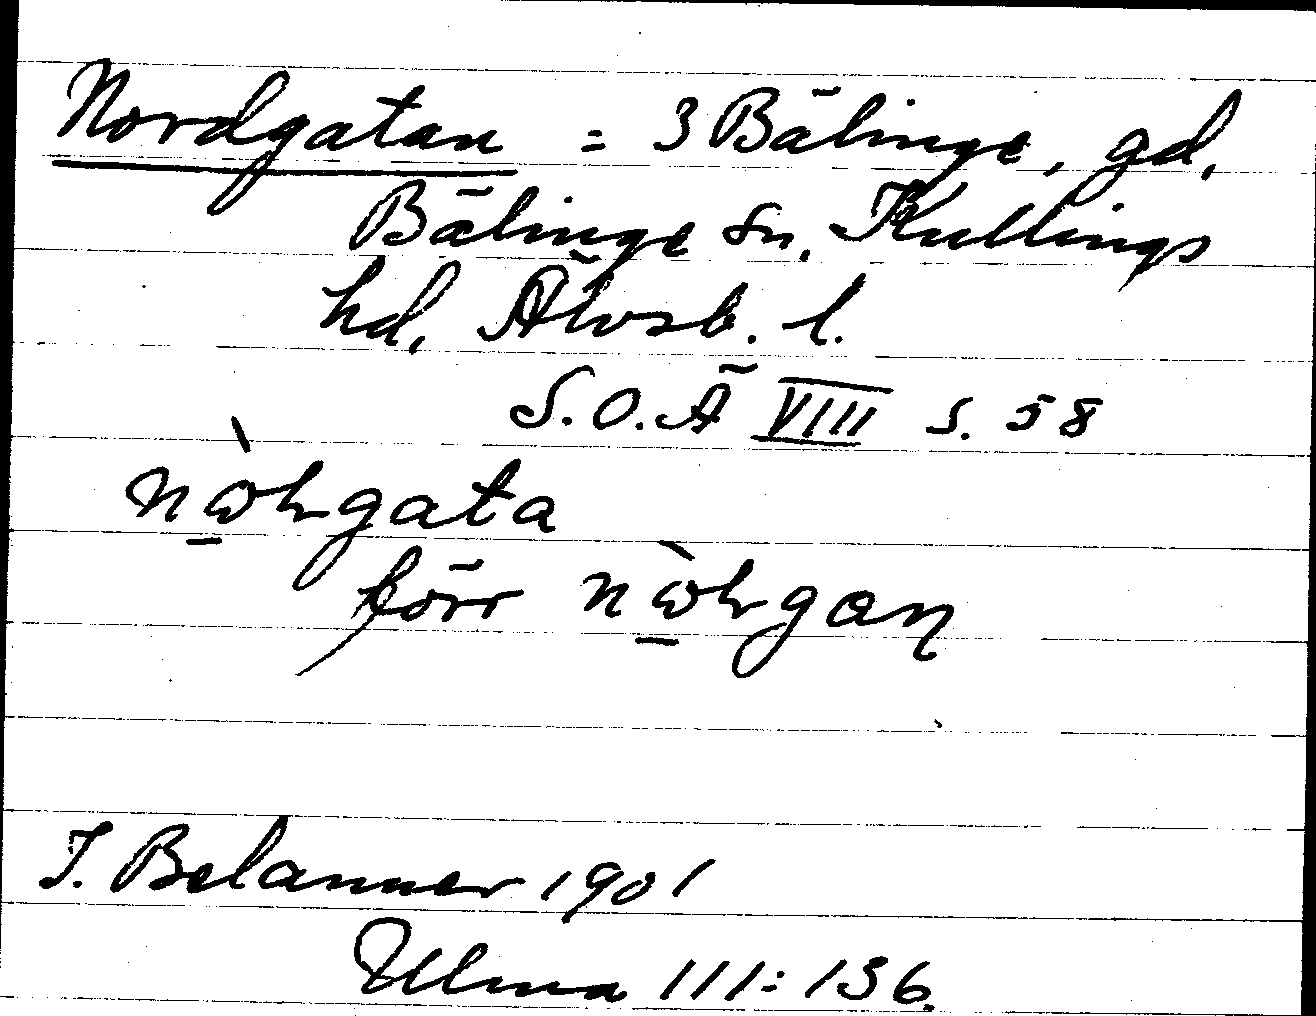 Nordgatan = 3 Bälinge, gd.
Bälinge sn. Kullings
hd. Älvsb. l.
S.O.Ä VIII s. 58
förr
T. Belanner 1901
Ulma 111:136.